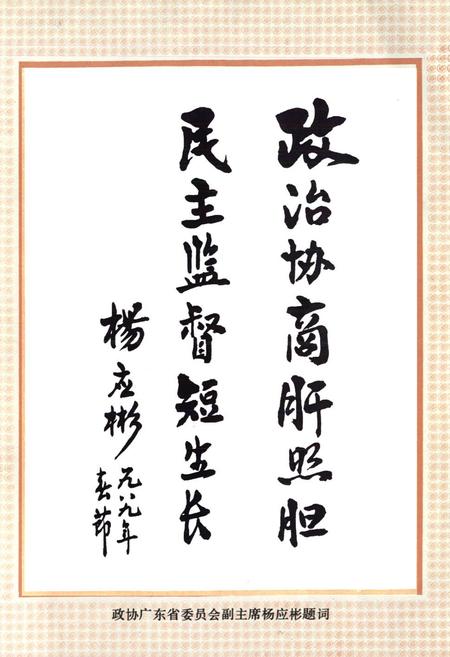 政治协商肝照胆
民主监督短生长
楊应彬
一九八九年
春节
政协广东省委员会副主席杨应彬题词